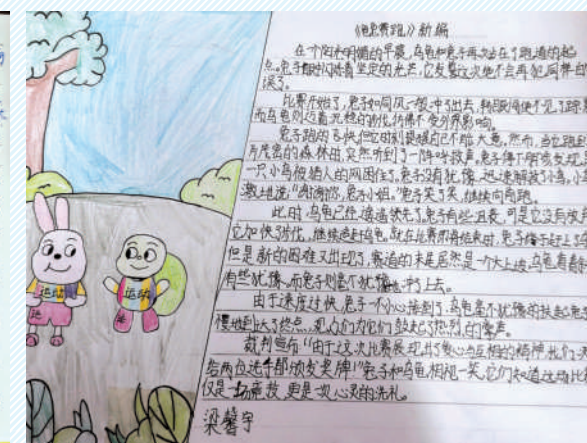 《龟兔赛跑》新编
在一个阳光明媚的早晨,乌龟和兔子再次站在了跑道的起
点。兔子眼里闪烁着坚定的光芒,它发誓这次绝不会再犯同样的
误了。
比赛开始了,兔子如同风一般冲了出去,转眼间便不见了踪影
而乌龟则迈着沉稳的步伐,仿佛不受外界影响。
兔子跑的飞快,但它时刻提醒自己不能大意。然而,当它跑进
片茂密的森林时,突然听到了一阵呼救声。兔子停下脚步发现
一只小鸟被猎人的网困住了,兔子没有犹豫,迅速解救了小鸟,小鸟
激地说:“谢谢你,兔子小姐。”兔子笑了笑,继续向前跑。
此时,乌龟已经遥遥领先了,兔子有些沮丧,可是它没有放
它加快了步伐,继续追赶乌龟。就在比赛即将结束时,兔子终于赶上
但是新的困难又出现了,赛道的末尾居然是一个大上坡,乌龟看着
有些犹豫。而兔子则毫不犹豫地冲了上去。
由于速度过快,兔子一不小心摔倒了,乌龟毫不犹豫的扶起兔子
慢地到达了终点。观众们为它们鼓起了热烈的掌声。
裁判宣布:“由于这次比赛展现出了爱心与互相的精神,我们
给两位选手都颁发奖牌!”兔子和乌龟相视一笑,它们知道这场比
仅是一场竞技,更是一次心灵的洗礼。
梁馨宇
运动
运动